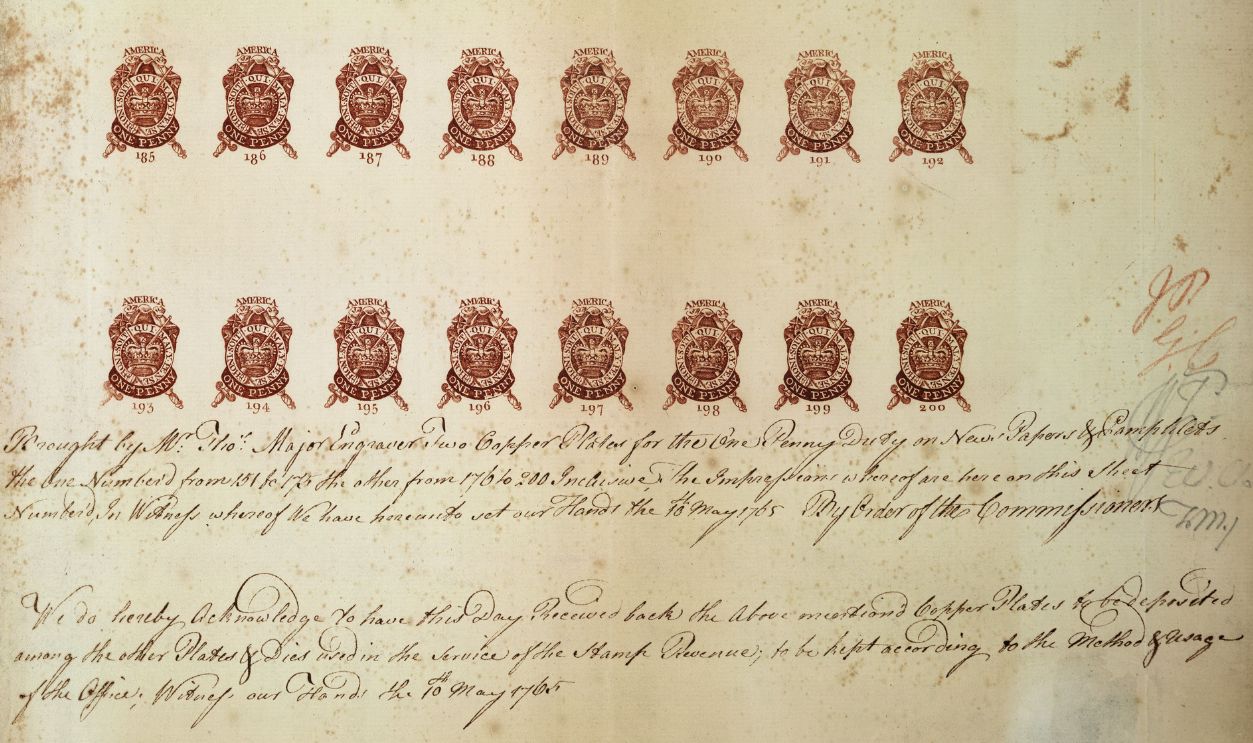 AMERICA AMERICA AMERICA AMERICA AMERICA AMERICA AMERICA AMERICA
HONI SOIT QUI MAL Y PENSE HONI SOIT QUI MAL Y PENSE HONI SOIT QUI MAL Y PENSE HONI SOIT QUI MAL Y PENSE HONI SOIT QUI MAL Y PENSE HONI SOIT QUI MAL Y PENSE HONI SOIT QUI MAL Y PENSE HONI SOIT QUI MAL Y PENSE
ONE PENNY ONE PENNY ONE PENNY ONE PENNY ONE PENNY ONE PENNY ONE PENNY ONE PENNY
185 186 187 188 189 190 191 192
AMERICA AMERICA AMERICA AMERICA AMERICA AMERICA AMERICA AMERICA
HONI SOIT QUI MAL Y PENSE HONI SOIT QUI MAL Y PENSE HONI SOIT QUI MAL Y PENSE HONI SOIT QUI MAL Y PENSE HONI SOIT QUI MAL Y PENSE HONI SOIT QUI MAL Y PENSE HONI SOIT QUI MAL Y PENSE HONI SOIT QUI MAL Y PENSE
ONE PENNY ONE PENNY ONE PENNY ONE PENNY ONE PENNY ONE PENNY ONE PENNY ONE PENNY
193 194 195 196 197 198 199 200
Brought by Mr. Thos. Major Ingraver Two Copper Plates for the One Penny Duty on News Papers & Pamphlets
the one Numberd from 151 to 175 the other from 176 to 200 Inclusive, The Impressions whereof are here on this Sheet
Numberd, In Witness whereof We have hereunto set our Hands the 10th May 1765 By Order of the Commissioners
We do hereby Acknowledge to have this Day Received back the Above mentiond Copper Plates to be deposited
among the other Plates & Dies used in the Service of the Stamp Revenue; to be kept according to the Method & Usage
of the Office; Witness our Hands the 10th May 1765